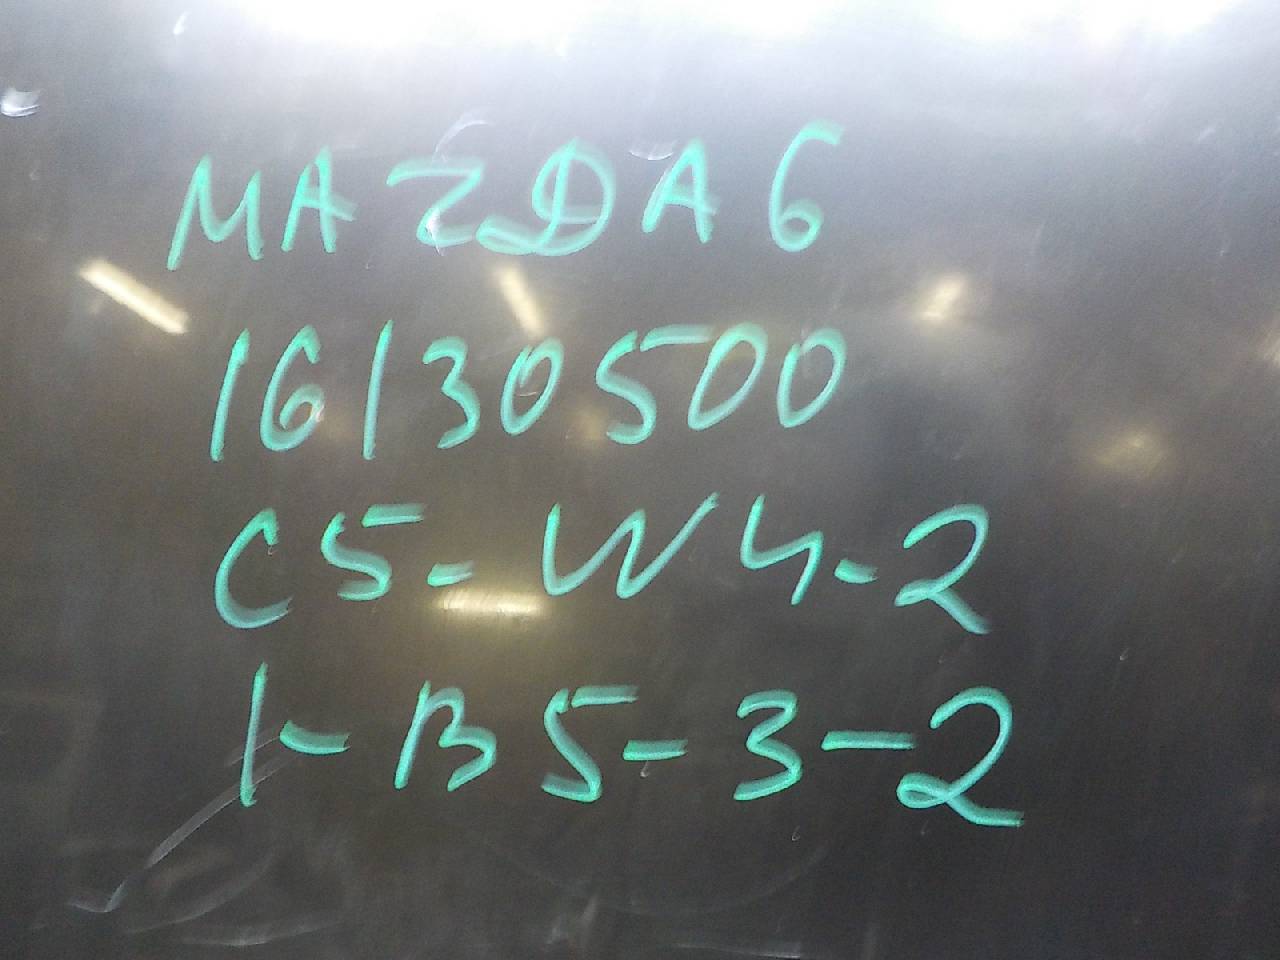 MAZDA 6
16130500
C5-W4-2
1-B5-3-2